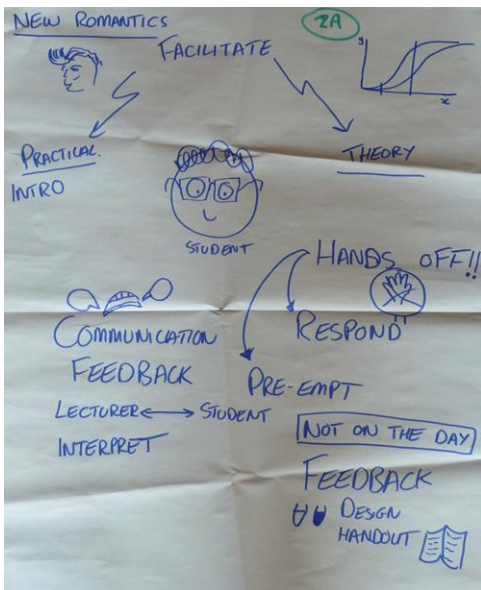 NEW ROMANTICS
2A
FACILITATE
y
x
PRACTICAL.
INTRO
THEORY
STUDENT
HANDS OFF!!
RESPOND
PRE-EMPT
COMMUNICATION
FEEDBACK
LECTURER ↔ STUDENT
INTERPRET
NOT ON THE DAY
FEEDBACK
DESIGN
HANDOUT